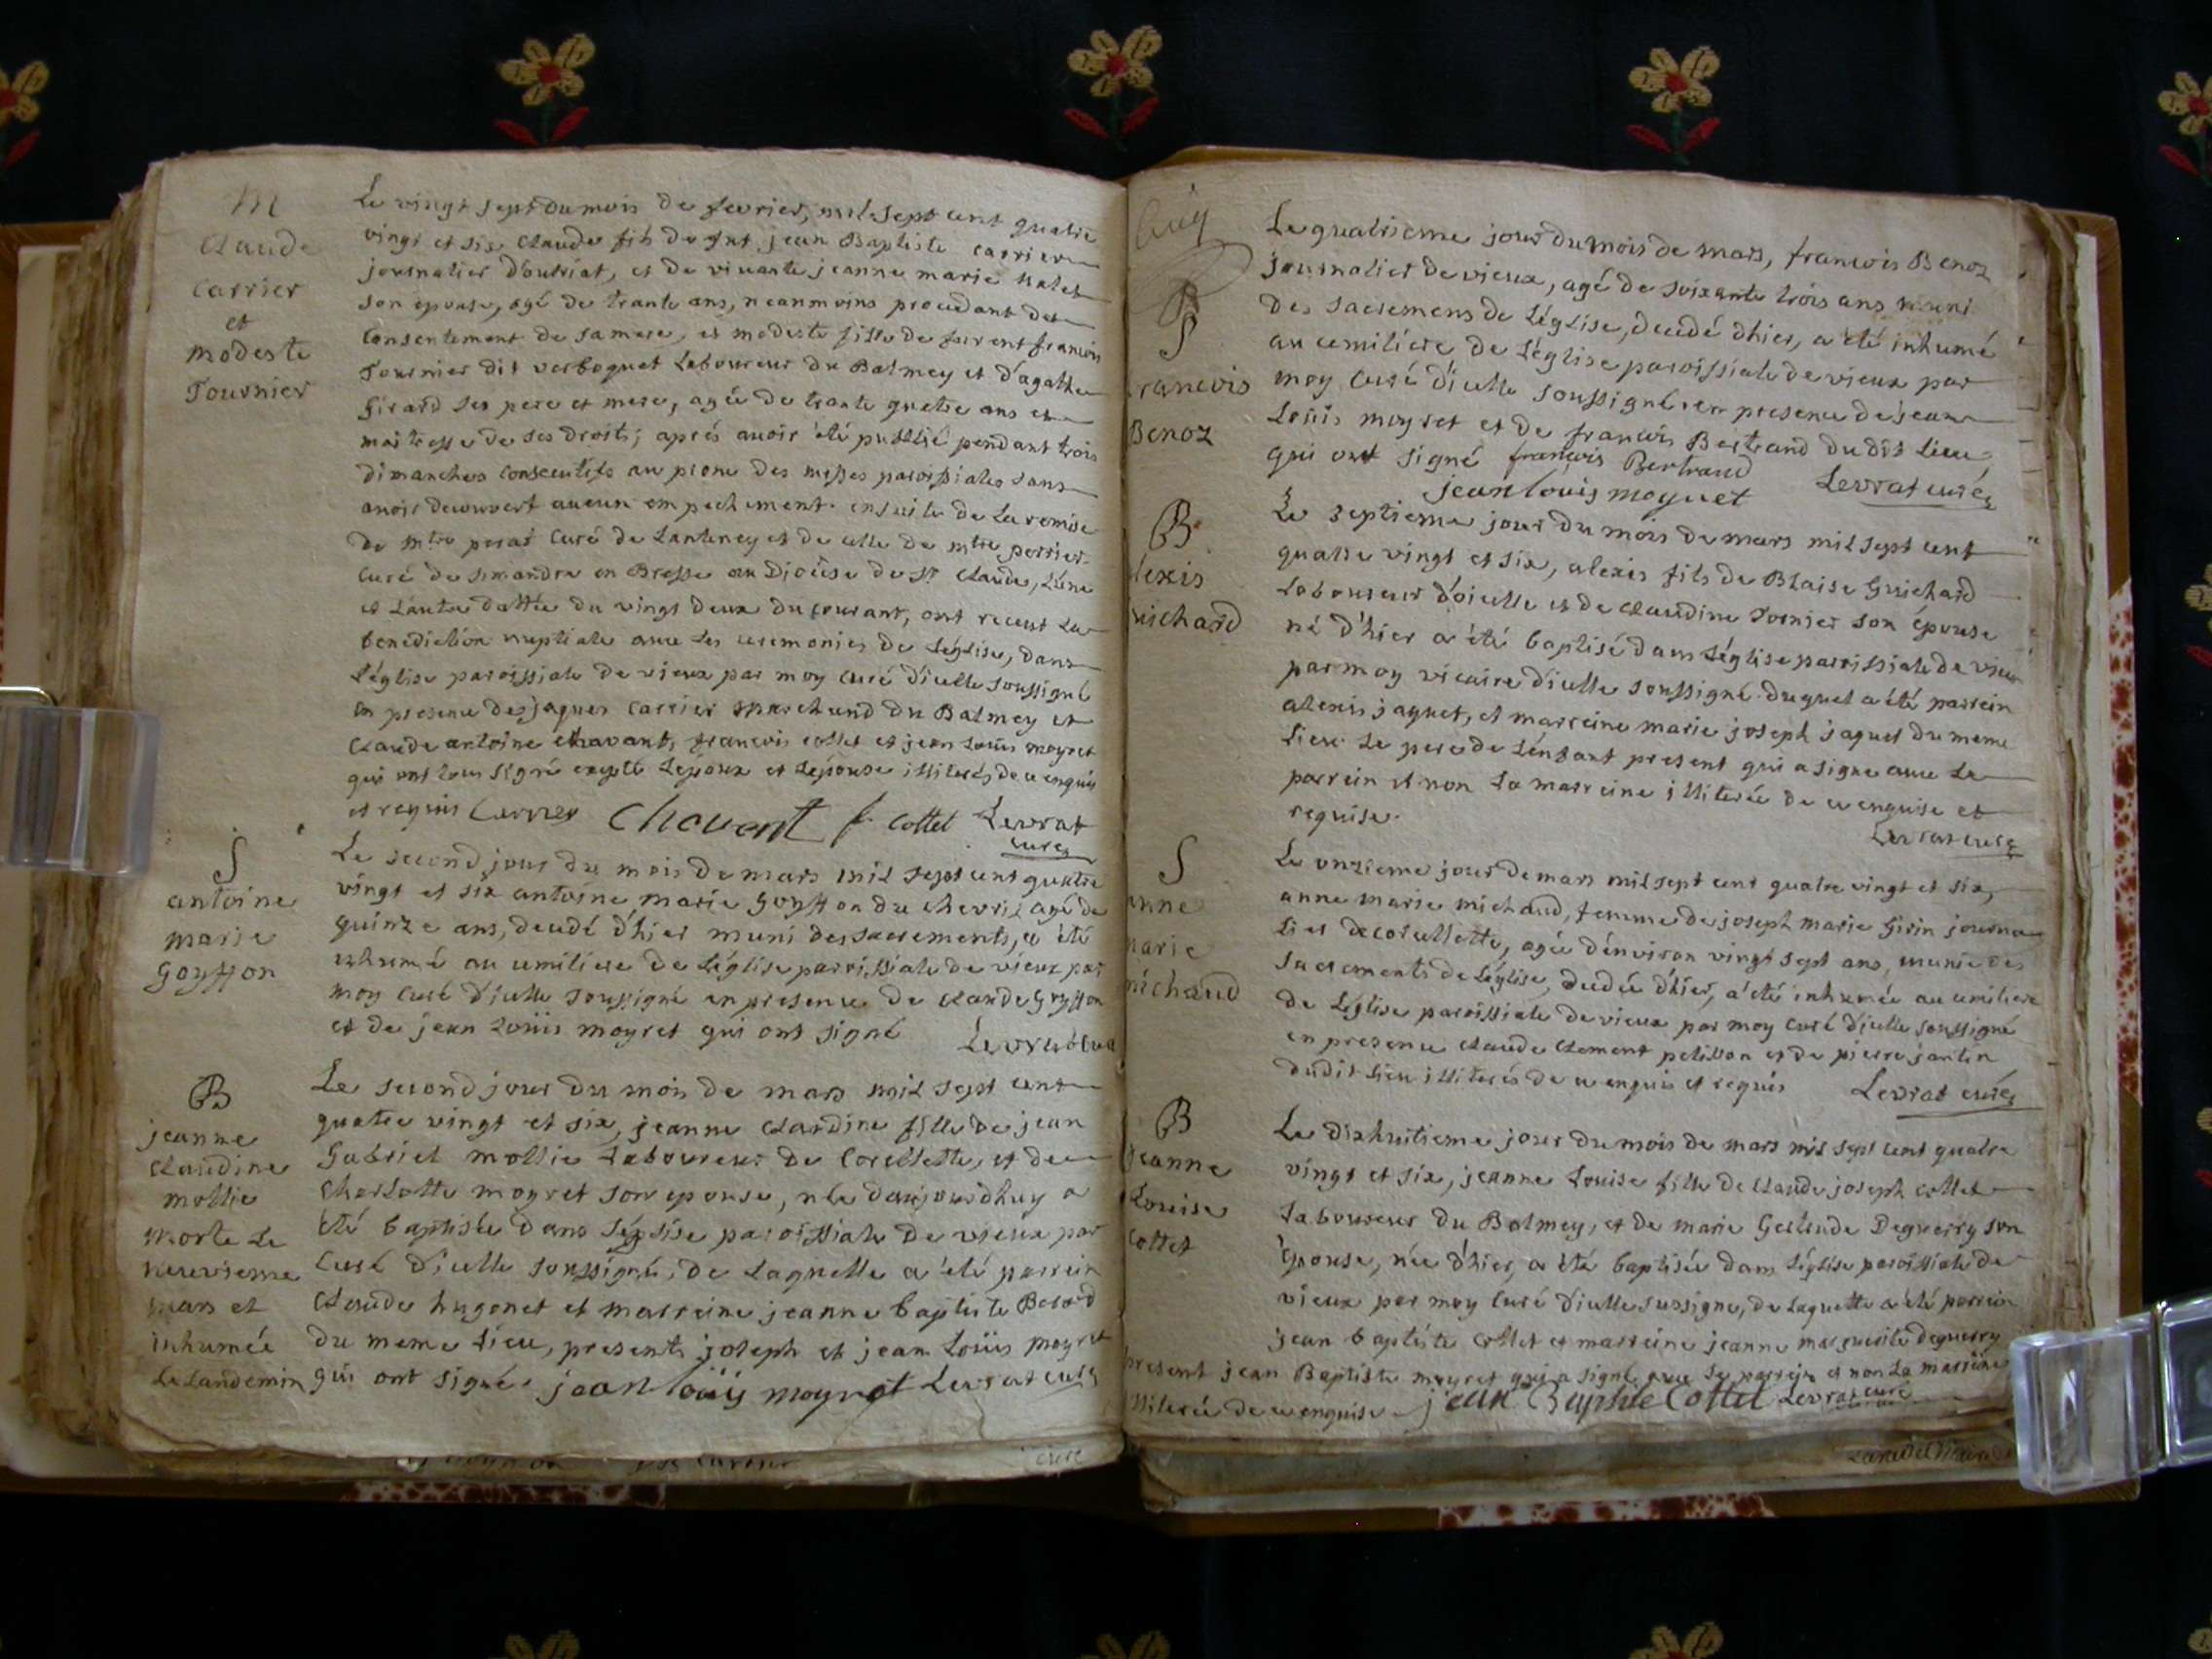 M
Claude
Carrier
et
modeste
Tournier
Le vingt sept du mois de fevrier, mil sept cent quatre
vingt et six Claude fils de fut jean Baptiste carrier
journalier d'outriat, et de vivante jeanne marie
son epouse, agé de trante ans, neanmoins procedant de
consentement de sa mere, et modeste fille de furent francois
Tournier dit verboquet Laboureur du Balmey et d'agathe
Girard ses pere et mere, agée de trante quatre ans et
maitresse de ses droits; aprés avoir été publié pendant trois
dimanches consecutifs au prone des messes paroissiales sans
avoir decouvert aucun empechement. ensuite de La remise
de mtre curé de Lanteney et de celle de mtre perrier
Curé de simandre en Bresse au Diocèse de St Claude, L'une
et L'autre dattée du vingt deux du courant, ont receut La
benediction nuptiale avec Les ceremonies de L'église, dans
L'église paroissiale de vieux par moy curé d'icelle soussigné
en presence de jaques carrier marchand du Balmey et
Claude antoine chavant, francois collet et jean Loüis moyret
qui ont tous signé excepté L'epoux et L'epouse illiterés de ce enquis
et requis Carrier Chavant f. Collet Levrat
curé
S
antoine
marie
Goyffon
Le second jour du mois de mars mil sept cent quatre
vingt et six antoine marie Goyffon du chevril agé de
quinze ans, decedé d'hier muni des sacrements, a été
inhumé au cemitiere de L'église parrissiale de vieux par
moy curé d'icelle soussigné en presence de claude Goyffon
et de jean Loüis moyret qui ont signé
Levrat curé
B
jeanne
Claudine
mollie
morte Le
neuvieme
mars et
inhumée
Le Landemin
Le second jour du mois de mars mil sept cent
quatre vingt et six, jeanne claudine fille de jean
Gabriel mollie Laboureur de Corcellette, et de
charlotte moyret son epouse, née daujourdhuy a
été baptisée dans L'église paroissiale de vieux par
curé d'icelle soussigné, de Laquelle a été parrein
Claude hugonet et marreine jeanne baptiste
du meme Lieu, presents joseph et jean Loüis moyret
qui ont signé. jean loüis moyret Levrat curé
B
S
francois
Benoz
Le quatrieme jour du mois de mars, francois Benoz
journalier de vieux, agé de soixante trois ans muni
des sacremens de L'église, decedé d'hier, a été inhumé
au cemitiere de L'église paroissiale de vieux par
moy curé d'icelle soussigné en presence de jean
Loüis moyret et de francois Bertrand du dit Lieu,
qui ont signé françois Bertrand
jean louis moyret Levrat curé
B
alexis
Guichard
Le septieme jour du mois de mars mil sept cent
quatre vingt et six, alexis fils de Blaise Guichard
Laboureur d'oicelle et de claudine Tornier son épouse
né d'hier a été baptisé dans L'église parrissiale de vieux
par moy vicaire d'icelle soussigné. duquel a été parrein
alexis jaquet, et marreine marie joseph jaquet du meme
Lieu. Le pere de L'enfant present qui a signé avec Le
parrein et non La marreine illiterée de ce enquise et
requise.
Levrat curé
S
anne
marie
michaud
Le onzieme jour de mars mil sept cent quatre vingt et six,
anne marie michaud, femme de joseph marie Girin journa
Lier de corcellette, agée d'environ vingt sept ans, munie des
sacrements de L'église, decedée d'hier, a été inhumée au cemitiere
de L'église paroissiale de vieux par moy curé d'icelle soussigné
en presence claude clement pelisson et de pierre jantin
dudit Lieu illiterés de ce enquis et requis Levrat curé
B
jeanne
Louise
Collet
Le dixhuitieme jour du mois de mars mil sept cent quatre
vingt et six, jeanne Louise fille de claude joseph collet
Laboureur du Balmey, et de marie Gertrude Deguerry son
épouse, née d'hier, a été baptisée dans L'église paroissiale de
vieux par moy curé d'icelle sussigné, de Laquelle a été parrein
jean baptiste collet et marreine jeanne marguerite deguerry
present jean Baptiste moyret qui a signé avec Le parrein et non La marreine
illiterée de ce enquise. jean Baptiste Collet Levrat curé
curé